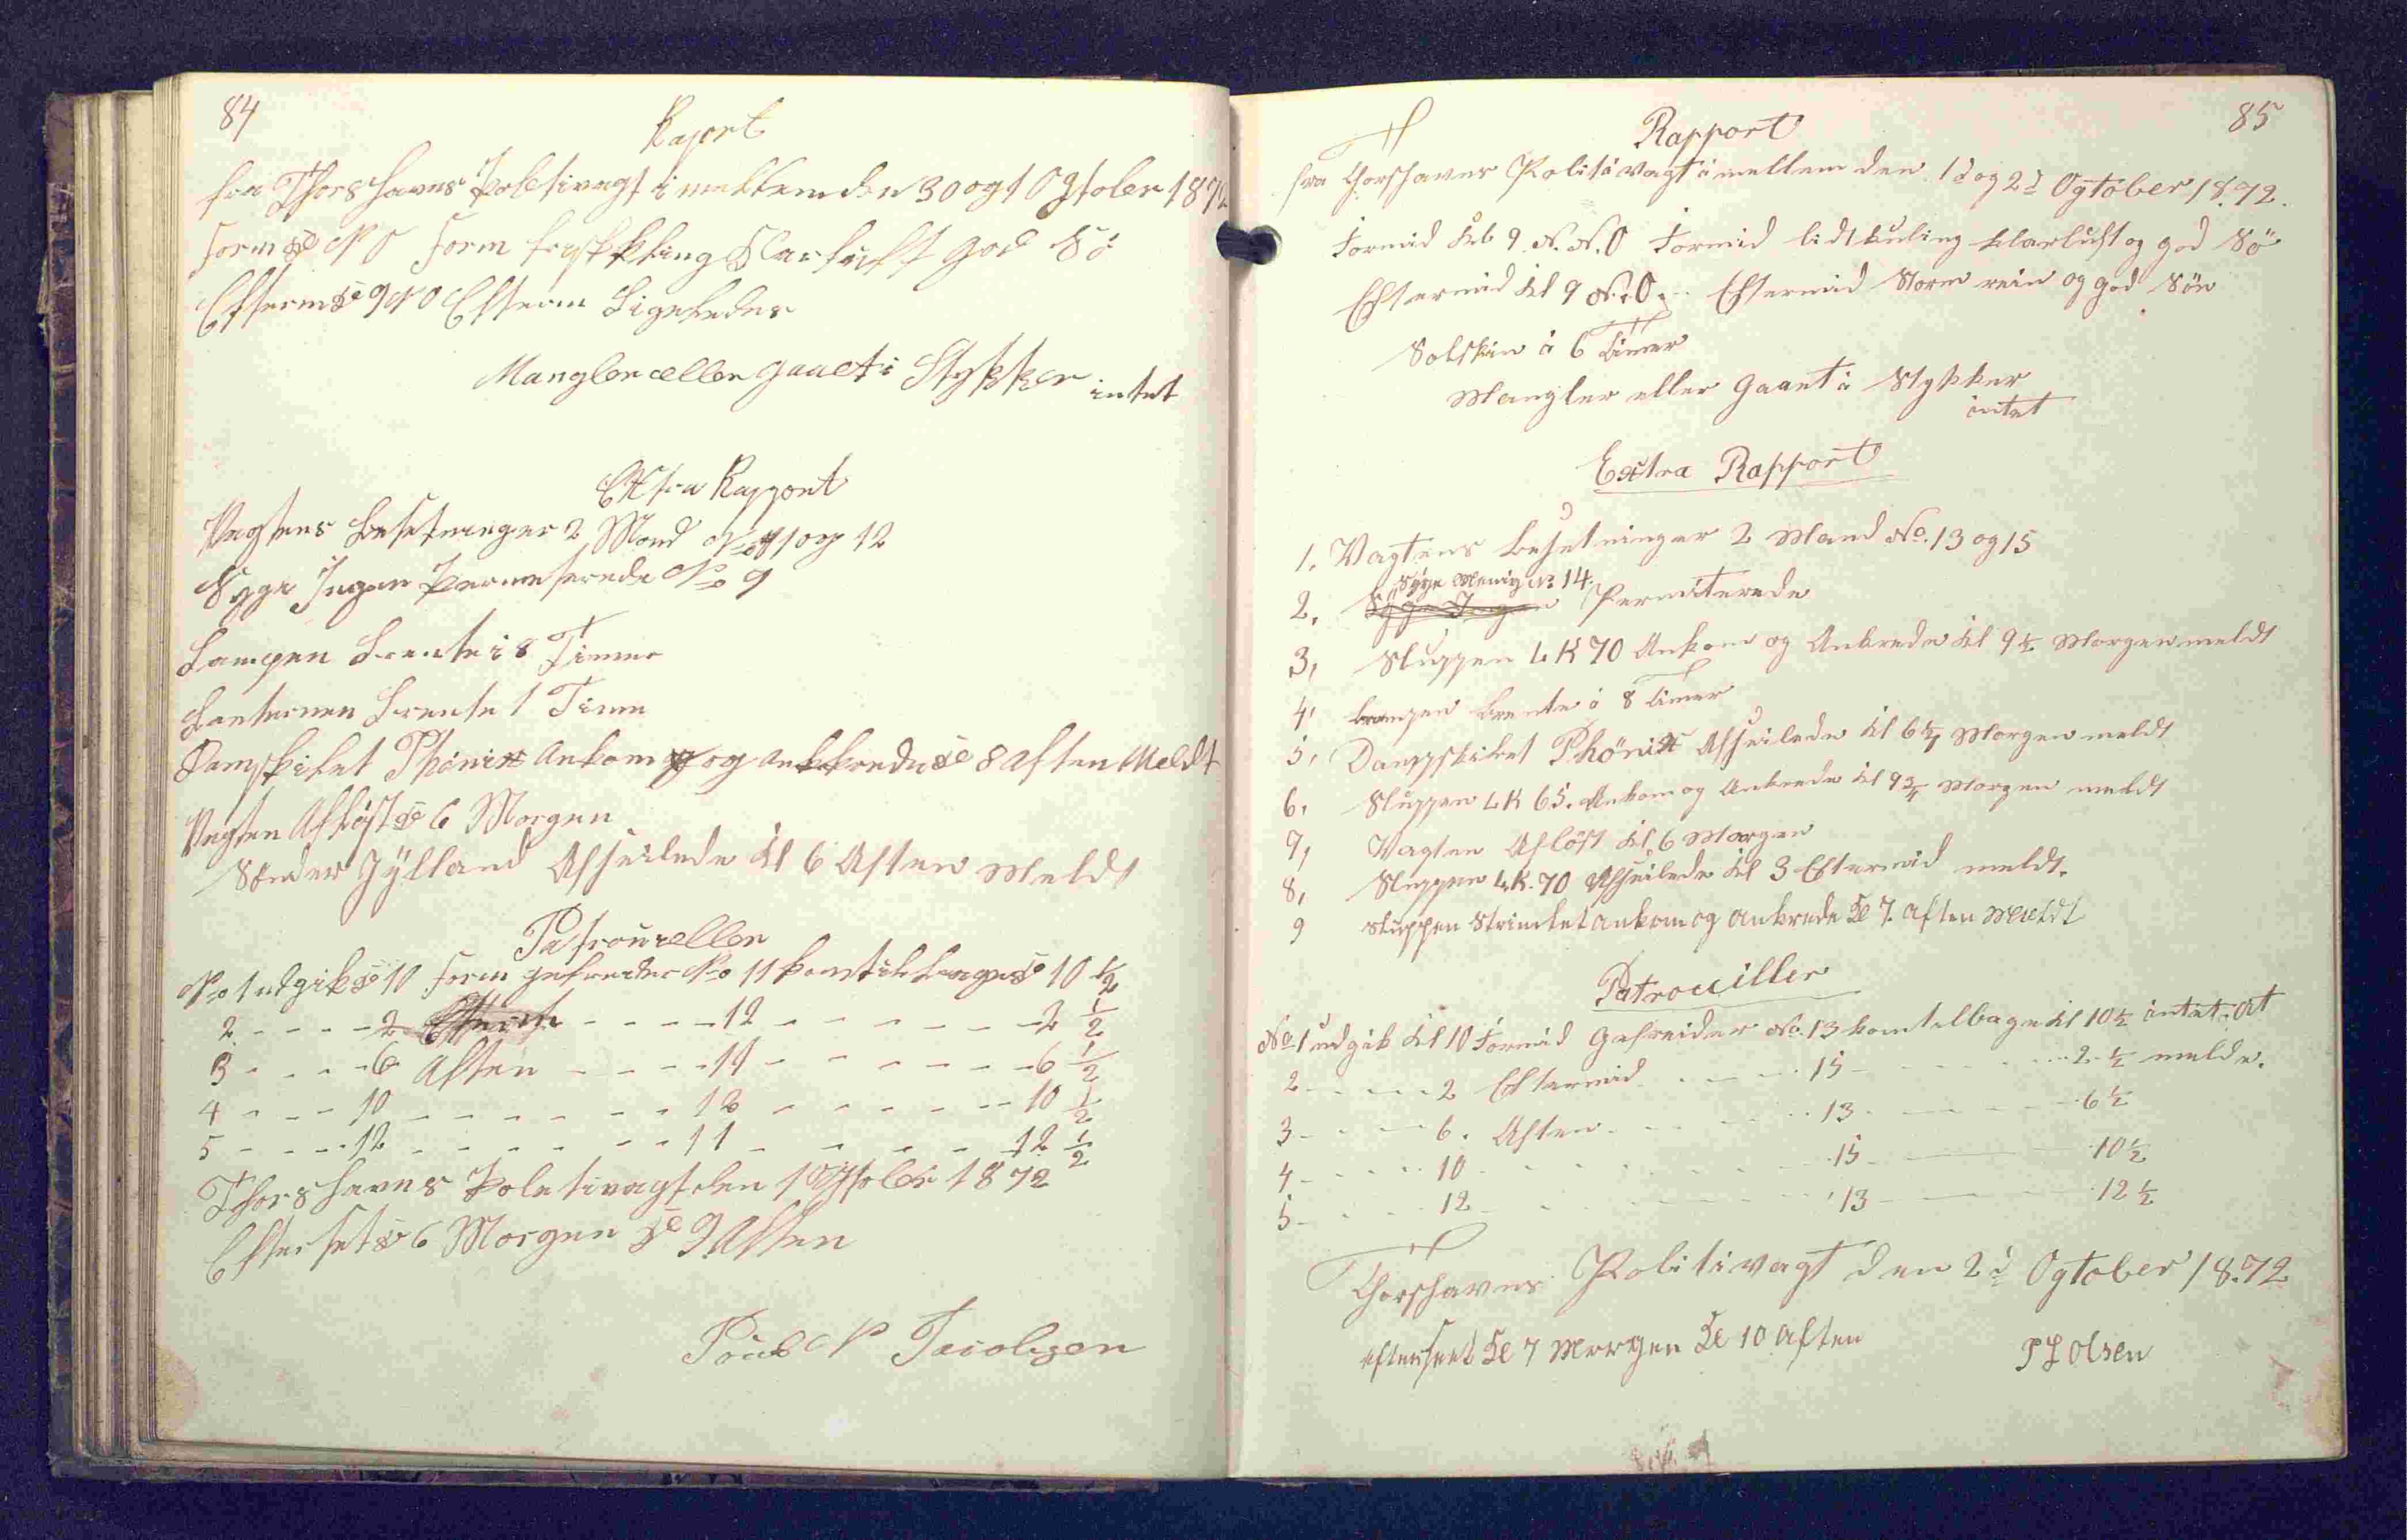 84
Raport
fra Thorshavns Poletivagt i mellem den 30 og 1 Ogtober 1872
Form Kl 9 N O Form frysk kling Klar luft god Sö
Efterm Kl 9 N O Efterm Ligeledes
Mangler eller gaaet i Stykker intet
Ekstra Rapport
Vagtens Besetninger 2 Mand No 11 og 12
Syge Ingen Permeterede No 9
Lampen Brente i 8 Timer
Lanternen Brente 1 Time
Dampskibet Phönix Ankom og Ankkrede Kl 8 Aften Meldt
Vagten Aflöst Kl 6 Morgen
Sönder Jylland Afseilede Kl 6 Aften Meldt
Patroueller
No 1 udgik Kl 10 Form gefreider No 11 kom tilbage Kl 10 1/2
2 - - - - 2 Efterm - - - - 12 - - - - - - 2 1/2
3 - - - - 6 Aften - - - - 11 - - - - - - 6 1/2
4 - - - 10 - - - - - - - 12 - - - - - - 10 1/2
5 - - - - 12 - - - - - - 11 - - - - - - 12 1/2
Thorshavns Poletivagt den 1 Ogtober 1872
Efterset Kl 6 Morgen Kl 9 Aften
Poul N Jacobsen
85
Rapport
fra Thorshavns Politivagt imellem den 1d og 2d Ogtober 18.72.
Formid Kl 9 N.N.O Formid lidt kuling klarluft og god Sö
Eftermid Kl 9 N.t.O. Eftermid Storm rein og god Sön
Solskin i 6 Timer
Mangler eller Gaaet i Stykker
intet
Extra Rapport
1. Vagtens besetninger 2 Mand No. 13 og 15
Syge Menig No 14.
2. Syge Ingen Permiterede
3, Sluppen LK 70 Ankom og Ankrede Kl 9 1/2 Morgen meldt
4, Lampen brente i 8 Timer
5, Dampskibet Phönix Afseilede Kl 6 1/4 Morgen meldt
6, Sluppen LK 65. Ankom og Ankrede Kl 9 3/4 Morgen meldt
7, Vagten Aflöst Kl 6 Morgen
8, Sluppen LK. 70 Afseilede Kl 3 Eftermid meldt.
9 Sluppen Strimlet ankom og ankrede Kl 7. aften Meldt
Patrouiller
No 1 udgik Kl 10 Formid Gefreider No. 13 kom tilbage Kl 10 1/2 intet at
2 - - - - 2 Eftermid - - - - 15 - - - - 2 1/2 melde.
3 - - - - 6. Aften - - - - 13 - - - - 6 1/2
4 - - - - 10 - - - - 15 - - - - 10 1/2
5 - - - - 12 - - - - 13 - - - - 12 1/2
Thorshavns Politivagt den 2d Ogtober 18.72
efterseet Kl 7 Morgen Kl 10 aften
P L Olsen